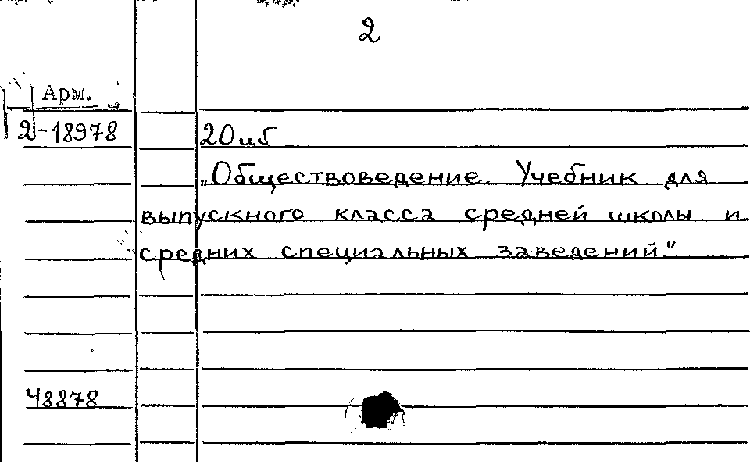 2
Арм.
2-18978
20иб
„Обществоведение. Учебник для
выпускного класса средней школы и
средних специальных заведений."
48878